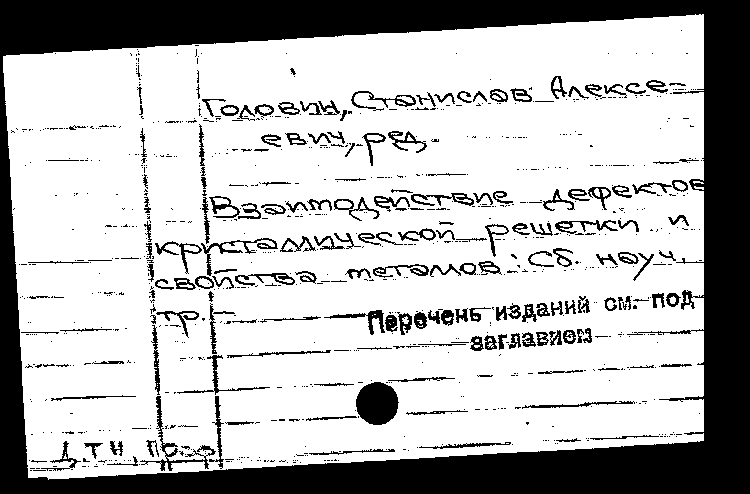 Головин, Станислав Алексе-
евич, ред.
Взаимодействие дефектов
кристаллической решетки и
свойства металлов: Сб. науч.
тр. —
Перечень изданий см. под
заглавием
Д.Т.Н, проф